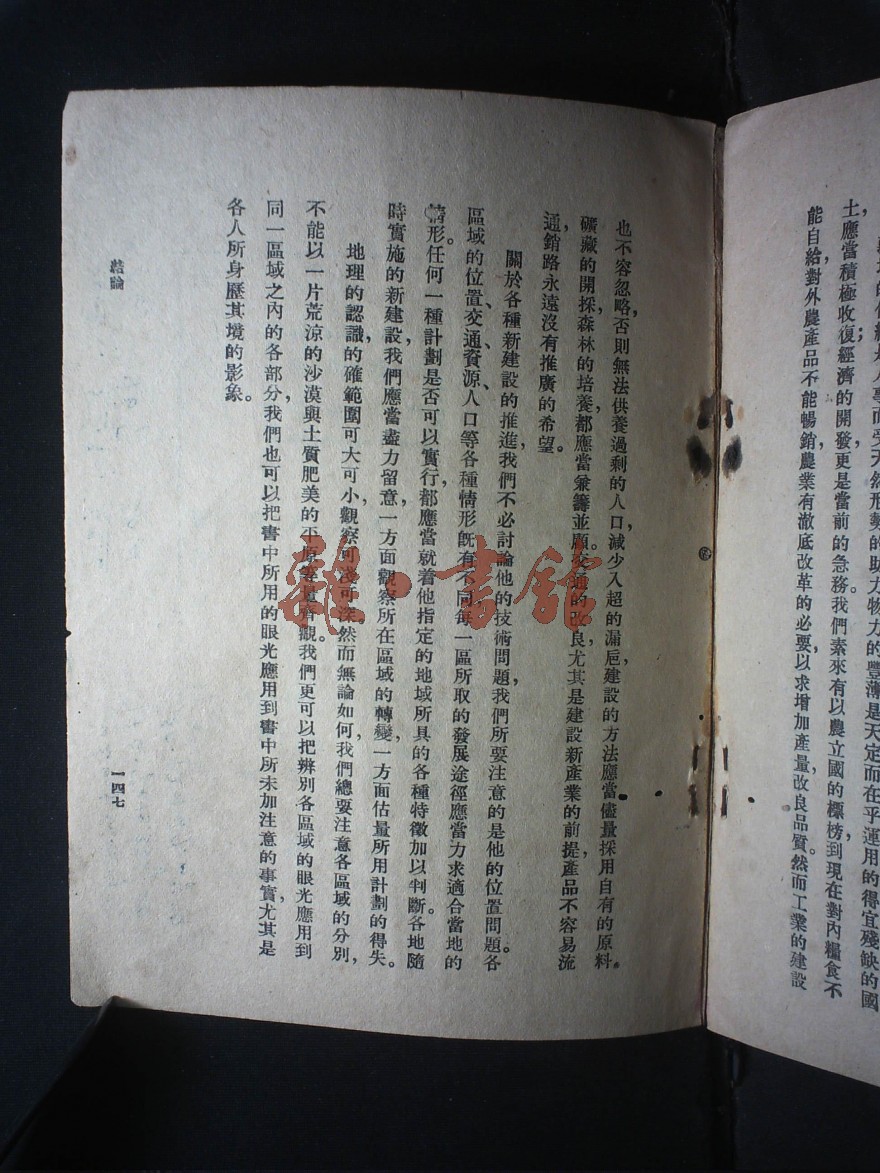 土應當積極收復經濟的開發更是當前的急務我們素來有以農立國的標榜到現在對內糧食不
能自給對外農產品不能暢銷農業有澈底改革的必要以求增加產量改良品質然而工業的建設
也不容忽略，否則無法供養過剩的人口，減少入超的漏巵建設的方法應當儘量採用自有的原料。
礦藏的開採，森林的培養都應當兼籌並顧。交通的改良，尤其是建設新產業的前提產品不容易流
通，銷路永遠沒有推廣的希望。
關於各種新建設的推進，我們不必討論他的技術問題，我們所要注意的是他的位置問題。各
區域的位置、交通、資源、人口等各種情形旣有不同，每一區所取的發展途徑應當力求適合當地的
情形。任何一種計劃是否可以實行，都應當就着他指定的地域所具的各種特徵加以判斷。各地隨
時實施的新建設，我們應當盡力留意，一方面觀察所在區域的轉變，一方面估量所用計劃的得失。
地理的認識的確範圍可大可小，觀察可淺可深。然而無論如何，我們總要注意各區域的分別，
不能以一片荒涼的沙漠與土質肥美的平原等量齊觀。我們更可以把辨別各區域的眼光應用到
同一區域之內的各部分，我們也可以把書中所用的眼光應用到書中所未加注意的事實，尤其是
各人所身歷其境的影象。
結論
一四七
雜·書館